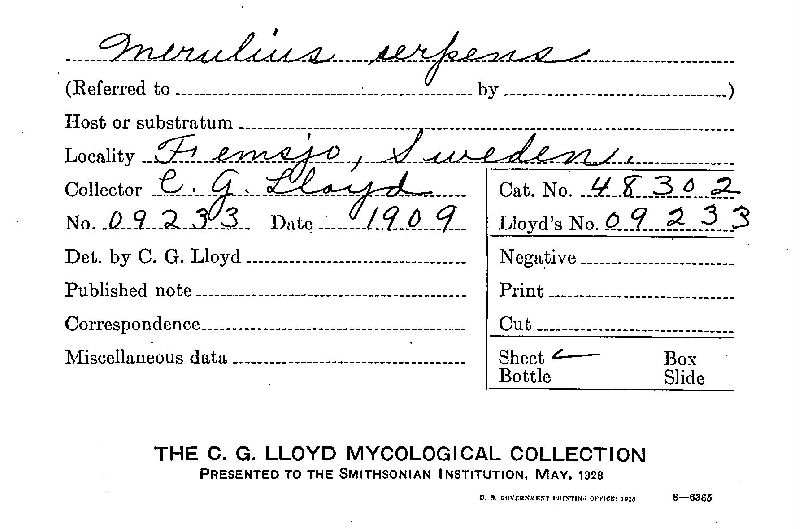 Merulius serpens
(Referred to by )
Host or substratum
Locality Femsjo, Sweden.
Collector C. G. Lloyd
No. 09233 Date 1909
Det. by C. G. Lloyd
Published note
Correspondence
Miscellaneous data
Cat. No. 48302
Lloyd's No. 09233
Negative
Print
Cut
Sheet Box
Bottle Slide
THE C. G. LLOYD MYCOLOGICAL COLLECTION
PRESENTED TO THE SMITHSONIAN INSTITUTION, MAY, 1928
U. S. GOVERNMENT PRINTING OFFICE: 1928 8—6365